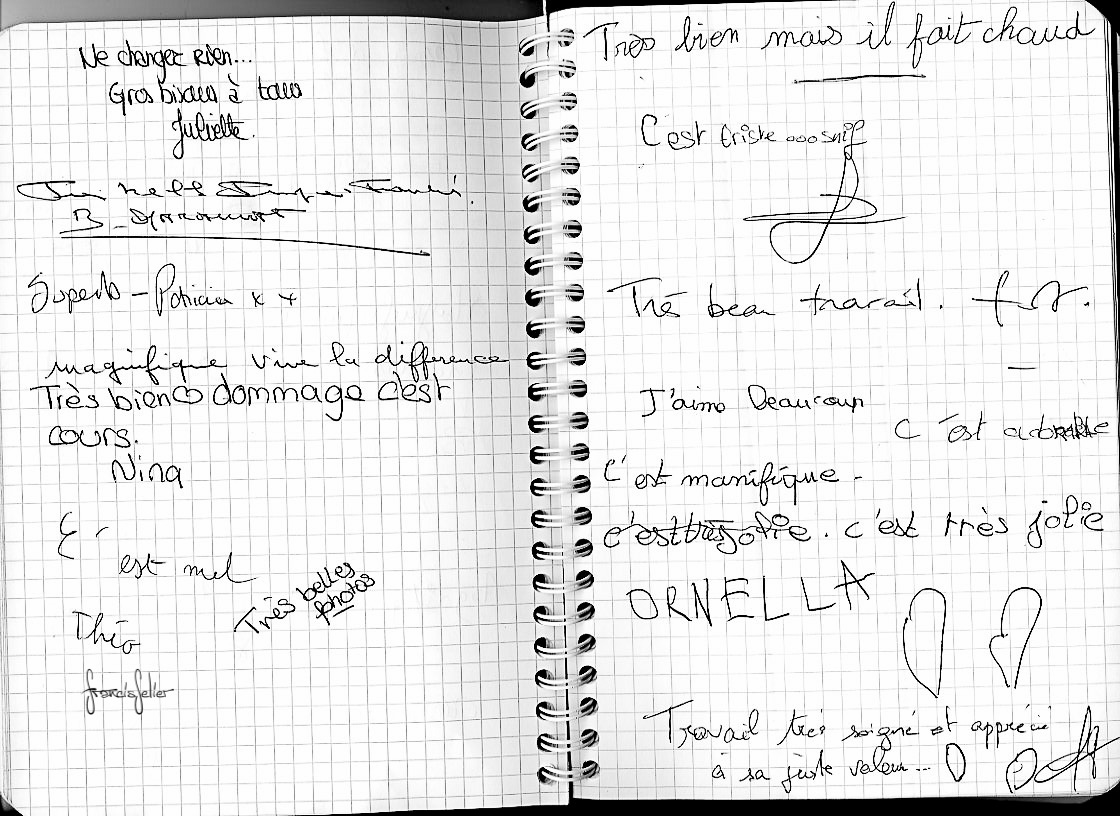 Ne changez rien...
Gros bisous à tous
Juliette.
B.
Superb - Patricia x x
magnifique vive la difference
Très bien dommage c'est
cours.
Nina
C'
est mel
Très belles
photos
Théo
francis feller
Très bien mais il fait chaud
C'est triste ooo snif
Très beau travail.
J'aime beaucoup
C'est adorable
C'est manifique -
c'est très jolie. c'est très jolie
ORNELLA
Travail très soigné et apprécié
à sa juste valeur...